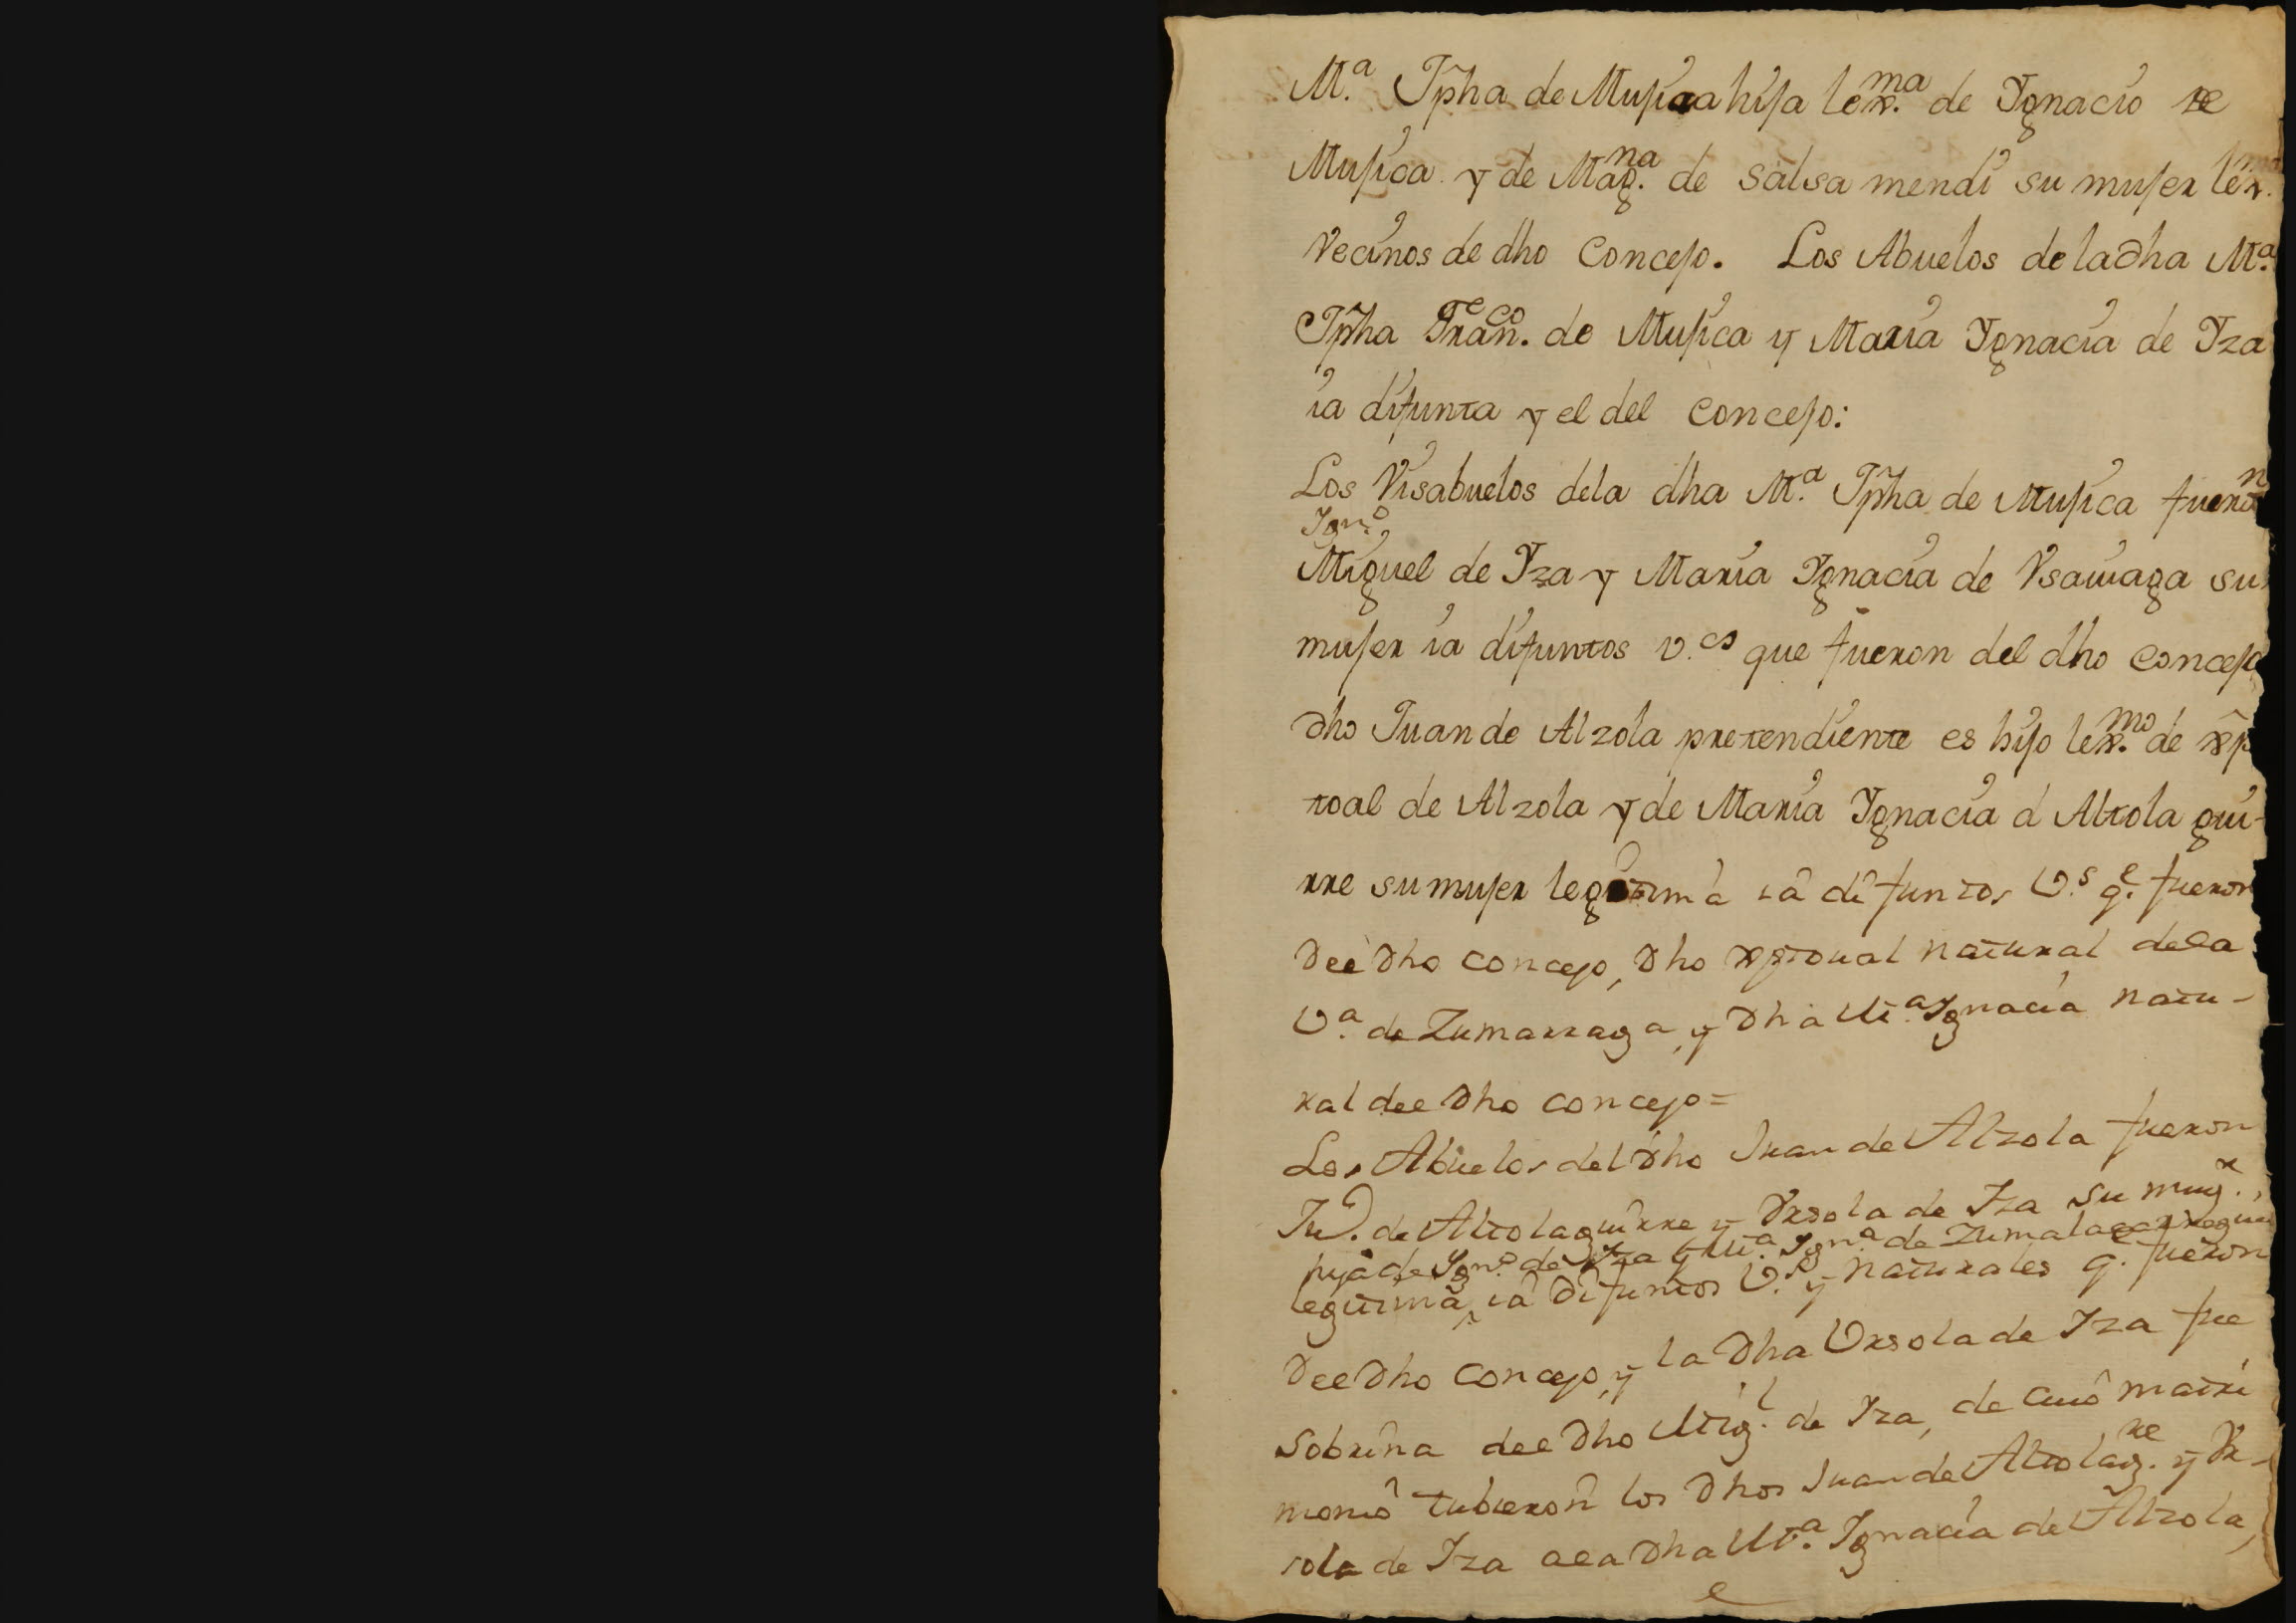 M.ª Jpha de Mujica hija lex.ma de Ygnacio de
Mujica y de Mag.na de salsa mendi su mujer lex.ma
Vecinos de dho Concejo. Los Abuelos de la dha M.ª
Jpha Fran.co de Mujica y Maria Ygnacia de Yza
ia difunta y el del Concejo:
Los Visabuelos dela dha M.ª Jpha de Mujica fueron
Ign.o
Miguel de Yza y Maria Ygnacia de Vsauiaga su
mujer ia difuntos v.es que fueron del dho Concejo
dho Juan de Alzola pretendiente es hijo lex.mo de xp
toal de Alzola y de Maria Ygnacia d Altola gui-
rre su mujer legitima ia difuntos V.s q.e fueron
Del Dho concejo, Dho xptoual natural dela
V.ª de Zumarraga, y Dha M.ª Ygnacia natu-
ral del Dho concejo=
Los Abuelos del Dho Juan de Alzola fueron
Ju.º de Altolaguirre y Vrsola de Yza su mug.r,
hija de Ygn.o de Yza y M.ª Ygn.a de Zumalacarregui
legitima, ia Difuntos V.s y naturales q. fueron
Del Dho concejo, y la Dha Vrsola de Yza fue
sobrina del Dho Mig.l de Yza, de cuio matri
monio tubieron los Dhos Juan de Altolag.re y Vr-
sola de Yza ala Dha M.ª Ygnacia de Alzola,